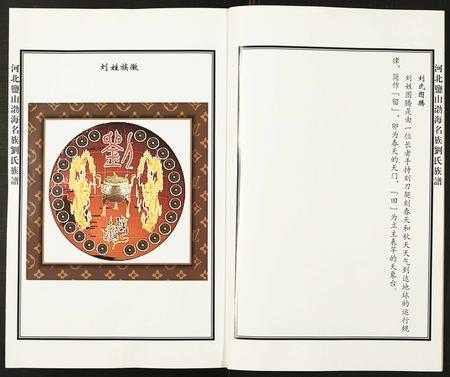 河北鹽山渤海名族劉氏族譜
刘姓族徽
劉
河北鹽山渤海名族劉氏族譜
刘氏图腾
刘姓图腾是由一位长者手持刻刀契刻春天和秋天天气到达地球的运行规
律，简作「留」，卯为春天的天门，「田」为立主表竿的天象台。